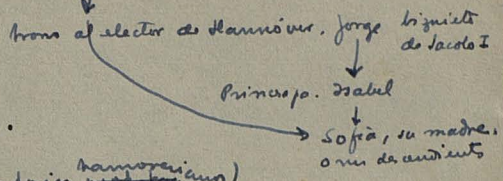 trono al elector de Hannóver. Jorge biznieto
de Jacobo I
Princesa. Isabel
Sofía, su madre.
o sus descendientes